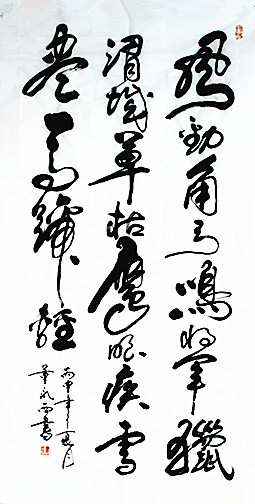 風勁角弓鳴将軍獵
渭城草枯鷹眼疾雪
盡馬蹄輕
丙申年月
書